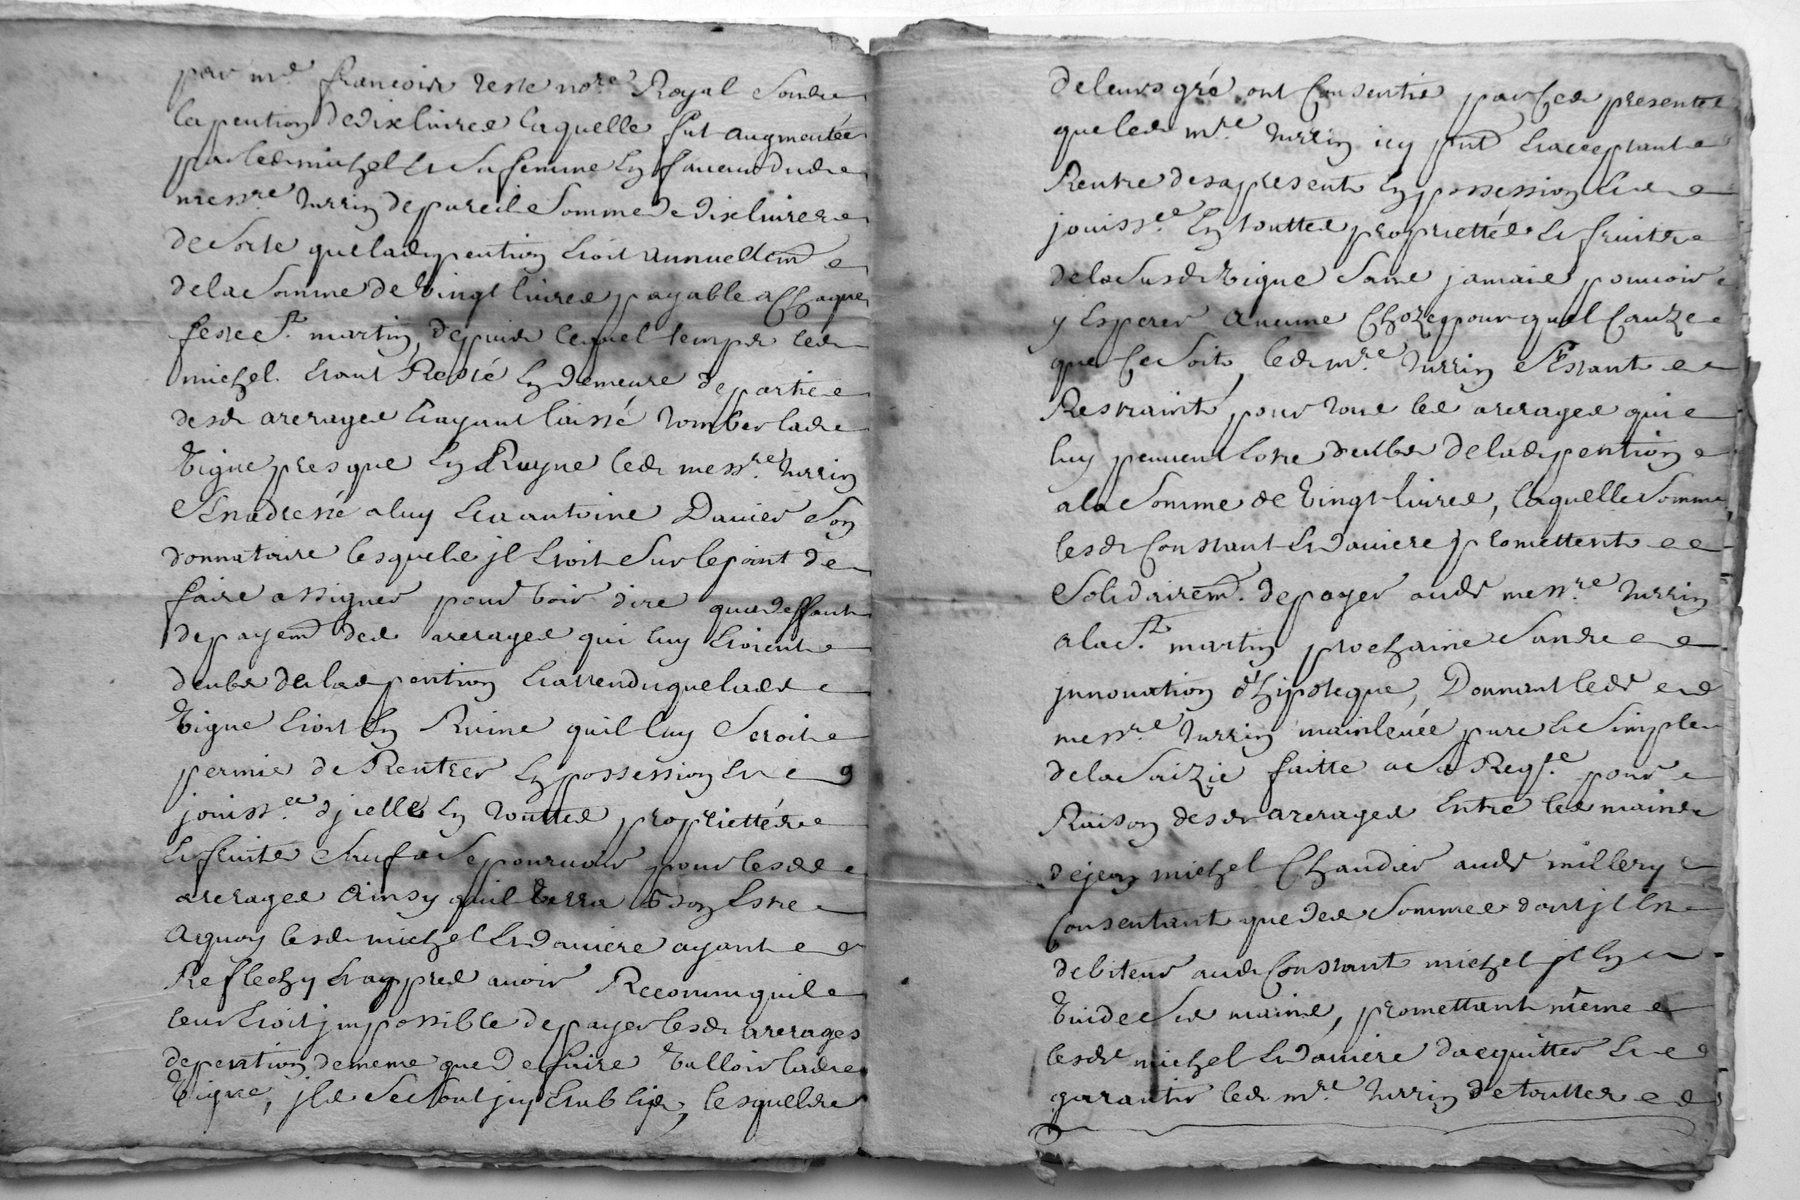 par m.e françois reste no.re Royal Soudz
la pention de dix livres laquelle fut augmentée
par led michel et sa femme en faveur dud
mess.re Turrin de pareile Somme de dix livres
de Sorte que lad pention étoit annuellem
de la Somme de vingt livres payable a Chaque
feste S.t martin, depuis lequel temps led
michel étant Resté en demeure de partie
desd arerages et ayant laissé tomber lad
vigne presque en Ruyne led mess.re Turrin
S'est adressé a luy et a antoine Daviere Son
donnataire lesquels jl étoit Sur le point de
faire assigner pour voir dire qua deffaut
de payem des arerages qui luy étoient
deubs de lad pention et attendu que lad
vigne étoit en Ruine quil luy Seroit
permis de Rentrer en possession et
jouiss.ce d'jcelle en touttes proprietés
et fruits Sauf a Se pourvoir pour lesd
arerages ainsy quil verra bon estre
a quoy lesd michel et Daviere ayant
Reflechy et apprés avoir Reconnu quil
leur étoit jmpossible de payer lesd arerages
de pention de meme que de faire valloir lad
vigne, jls Se sont jcy établis, lesquels
de leurs gré ont Consentis par Ces presentes
que led m.re Turrin icy pnt et acceptant
Rentre des a present en possession et
jouiss.ce en touttes proprietés et fruits
de la Susd vigne Sans jamais pouvoir
y esperer aucune Choze pour quel Cauze
que Ce Soit, led m.re Turrin S'étant
Restraint, pour tous les arerages qui
luy peuvent estre deubs de lad pention
a la Somme de vingt livres, laquelle Somme,
lesd Constant et Daviere promettent
Solidairem. de payer aud mess.re Turrin
a la S.t martin prochaine Sans
jnnovation d'hipoteque, Donnant led
mess.re Turrin mainlevée pure et Simple
de la Saizie faitte a Sa Reqt.e pour
Raison desd arerages entre les mains
de jean michel Chandier aud millery
Consentant que des Sommes dont jl est
debiteur aud Constant michel jl en
vuide Ses mains, promettant même
lesd michel et Daviere d'acquitter et
garantir led m.re Turrin de touttes